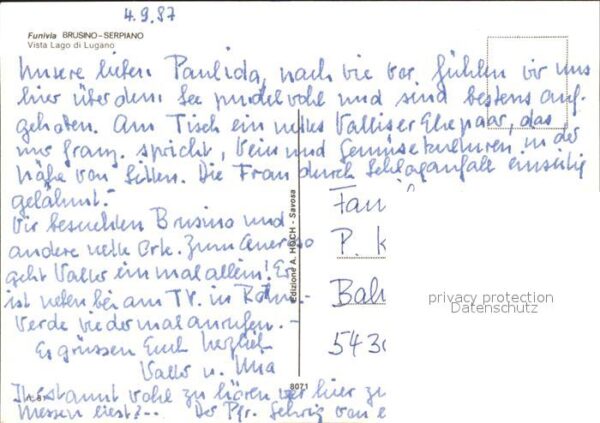 4.9.87
Funivia BRUSINO-SERPIANO
Vista Lago di Lugano
Unsere lieben Paulida, nach wie vor fühlen wir uns
hier über dem See pudelwohl und sind bestens auf-
gehoben. Am Tisch ein nettes Walliser Ehepaar, das
nur franz. spricht, Wein und Gemüsekulturen in der
Nähe von Sitten. Die Frau durch Schlaganfall einseitig
gelähmt.-
Wir besuchten Brusino und
andere nette Orte. Zum Generoso
geht Walko einmal allein! Er
ist neben bei am TV. in Rom.-
Werde wieder mal anrufen.-
Es grüssen Euch herzlich
u. Mia
wohl zu hören wer hier zu
Messen liest?-- Der Pfr. von
Fam
P. K
543
Edizione A. HOCH - Savosa
8071
privacy protection
Datenschutz